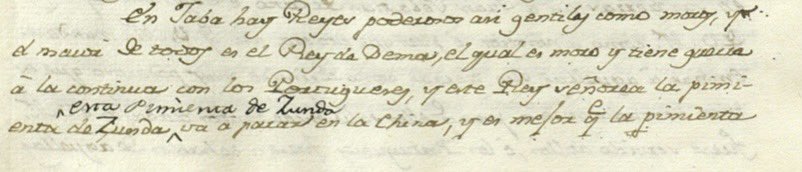 En Jaba hay Reyes poderosos asi gentiles como moros, y
el maior de todos es el Rey de Dema, el qual es moro y tiene guerra
â la continua con los Portugueses, y este Rey señorea la pimi-
esta Pimienta de Zunda
enta de Zunda ^ va â parar en la China, y es mejor qe la pimienta